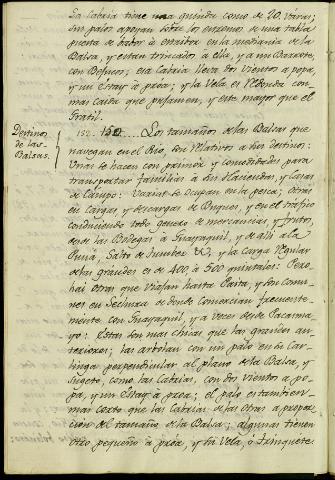 La Cabria tiene una guinda como de 20. varas;
sus palos apoyan sobre los extremos de una tabla
puesta de babor á estribor en la medianía de la
Balsa, y estan trincados á ella, y á un Barrote,
con Bejucos; esa Cabria lleva dos vientos á popa,
y un Estay á proa; y la Vela es redonda con
mas caida que pujamen, y este mayor que el
Gratil.
Destinos
de las
Balsas.
152. Los tamaños de las Balsas que
navegan en el Rio, son relativos á sus destinos:
Unas se hacen con primor y comodidades para
transportar familias á sus Haciendas, y Casas
de Campo: Varias se ocupan en la pesca; otras
en cargas, y descargas de Buques, y en el trafico
conduciendo todo genero de mercancias, y frutos,
desde las Bodegas á Guayaquil, y de allí á la
Puná, Salto de Tumbez &c, y la carga regular
de las grandes es de 400 á 500 quintales: Pero
hai otras que viajan hasta Paita, y son comu-
nes en Sechura de donde comercian frecuente-
mente con Guayaquil, y á veces desde Pacasma-
yo: Estas son mas chicas que las grandes an-
teriores; las arbolan con un palo en su Car-
linga perpendicular al plano de la Balsa, y
sugeto, como las Cabrias, con dos vientos á po-
pa, y un Estay á proa; el palo es tambien
mas corto que las Cabrias de las otras á propor-
cion del tamaño de la Balsa; algunas tienen
otro pequeño á proa, y la Vela, ó Trinquete